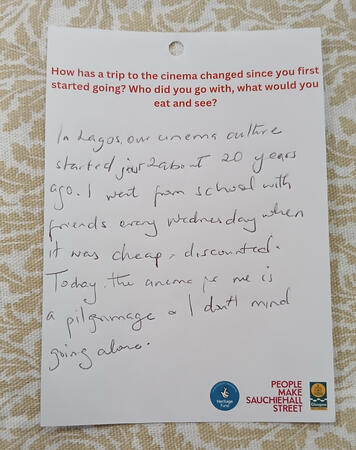 How has a trip to the cinema changed since you first
started going? Who did you go with, what would you
eat and see?
In Lagos, our cinema culture
started just about 20 years
ago. I went from school with
friends every Wednesday when
it was cheap, discounted.
Today, the cinema for me is
a pilgrimage & I don't mind
going alone.
Heritage
Fund
PEOPLE
MAKE
SAUCHIEHALL
STREET